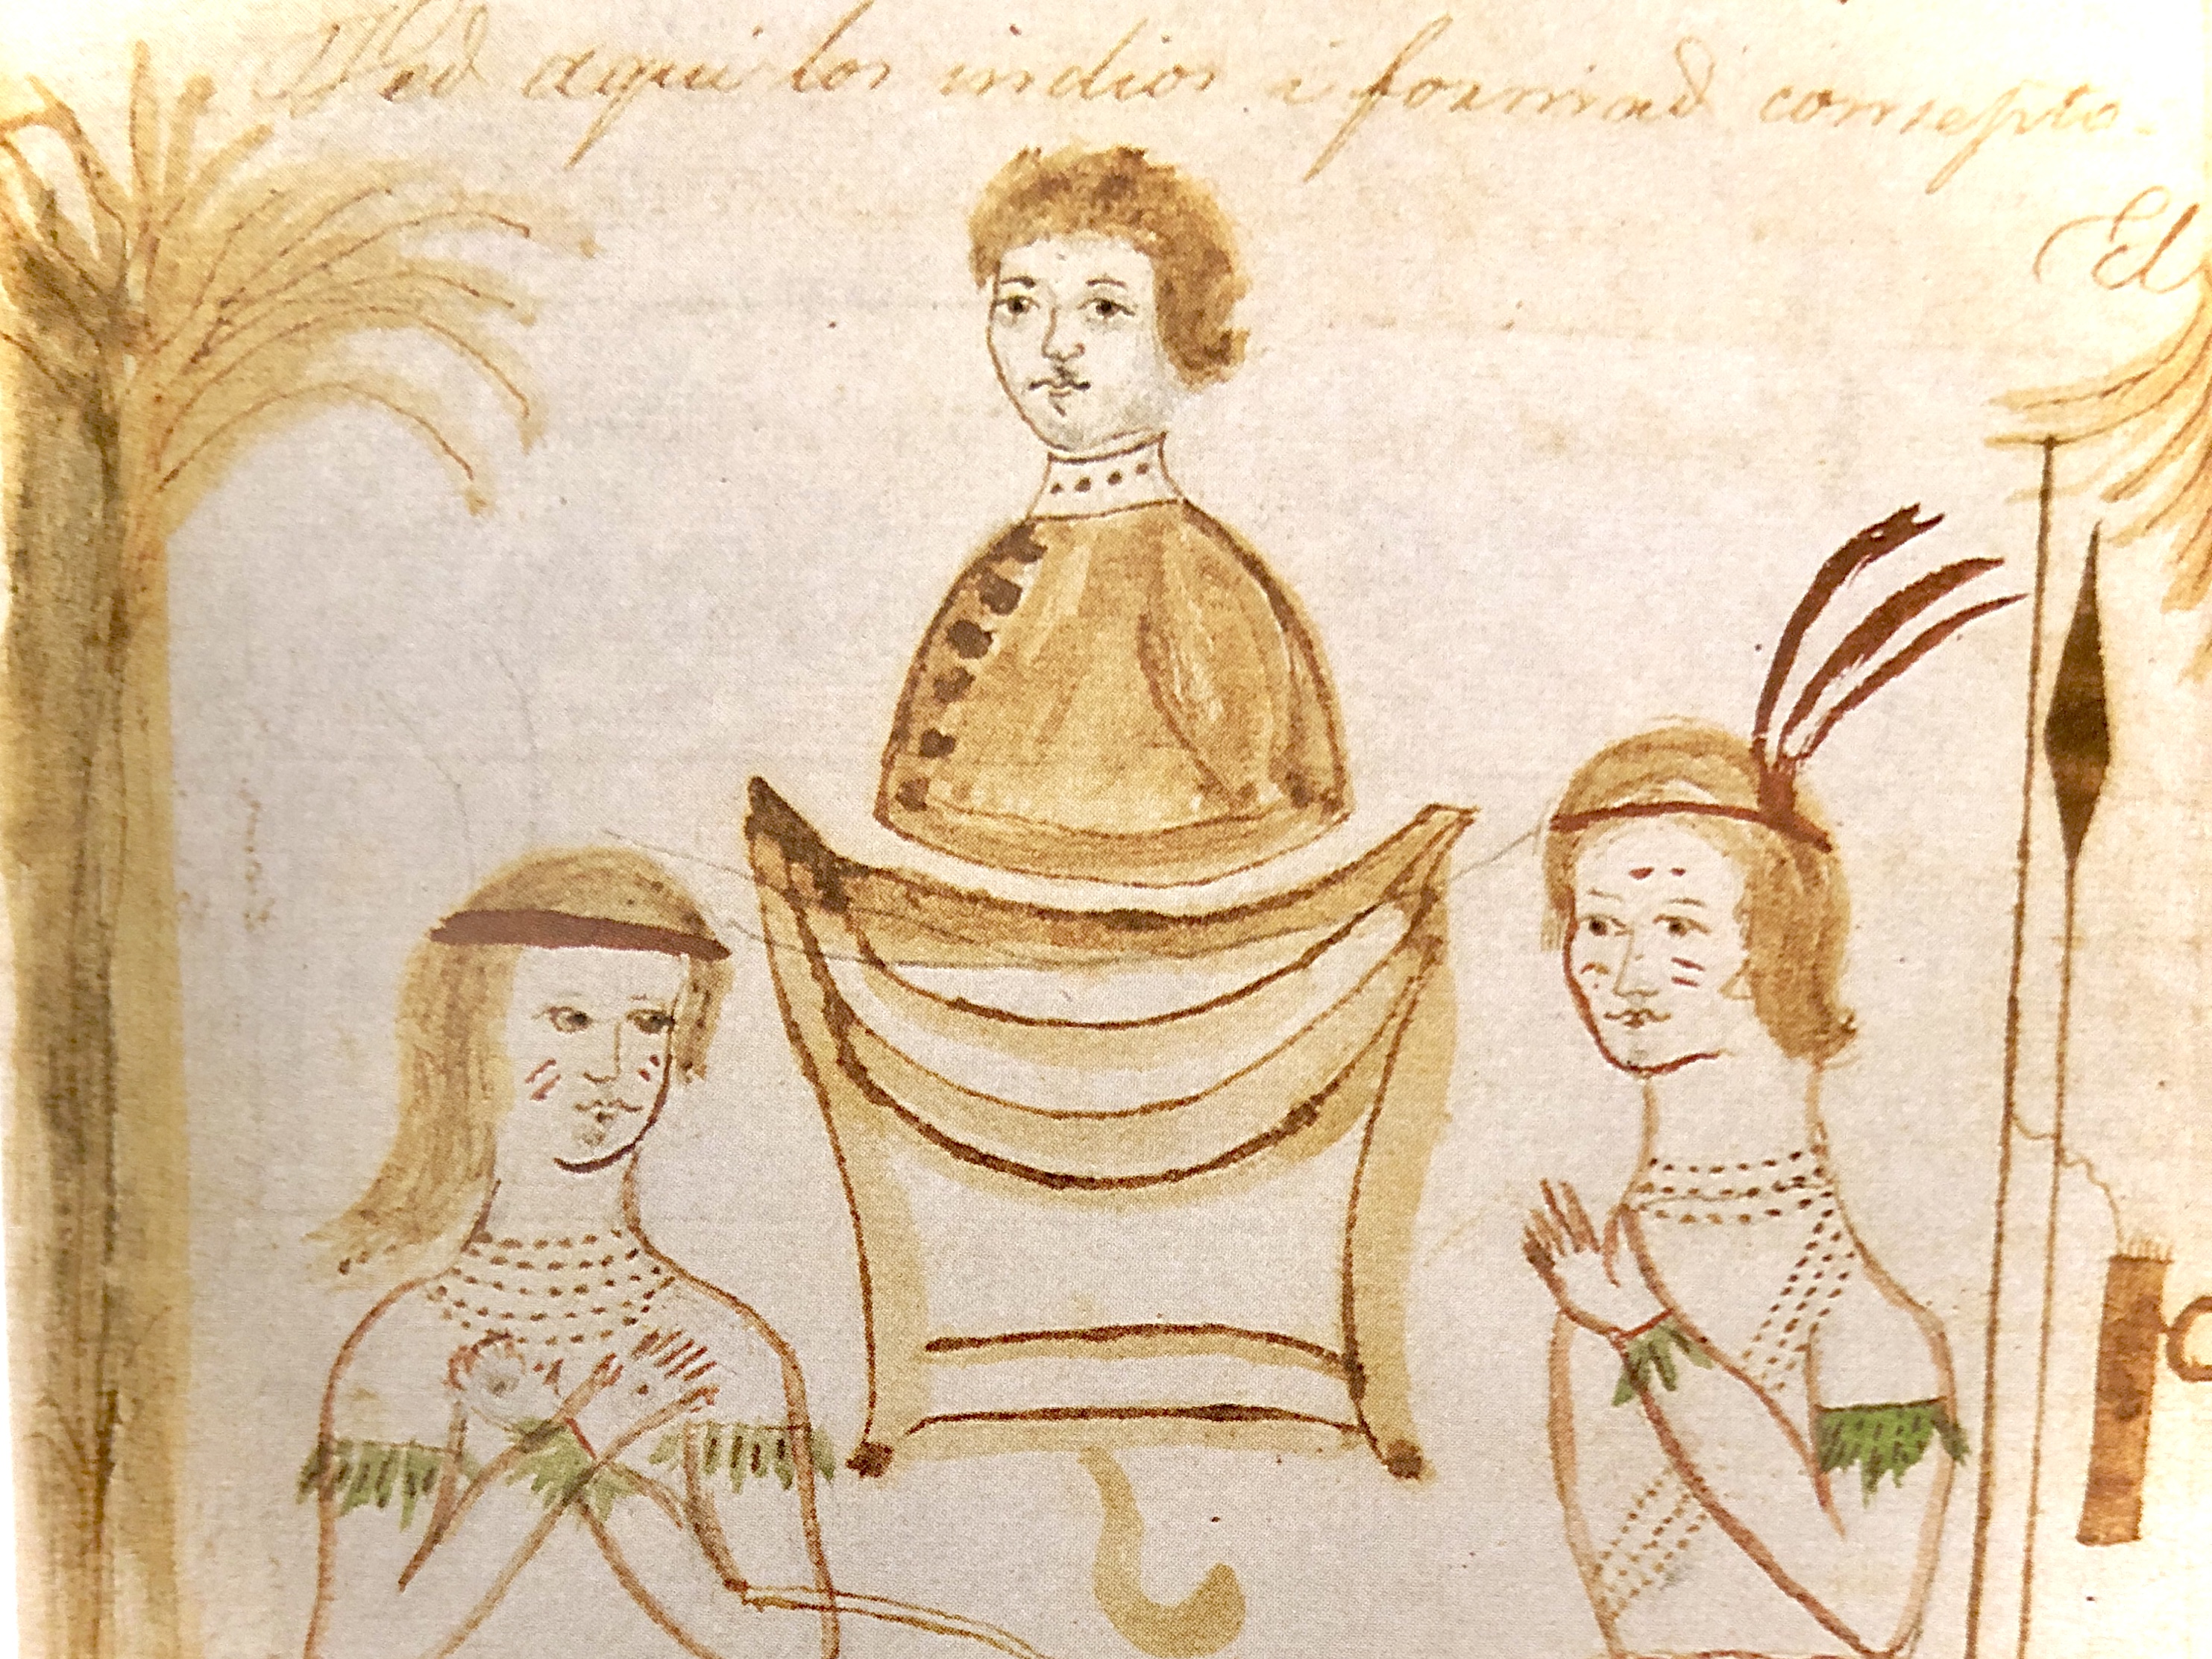 Ved aqui los indios i formad consepto.
El